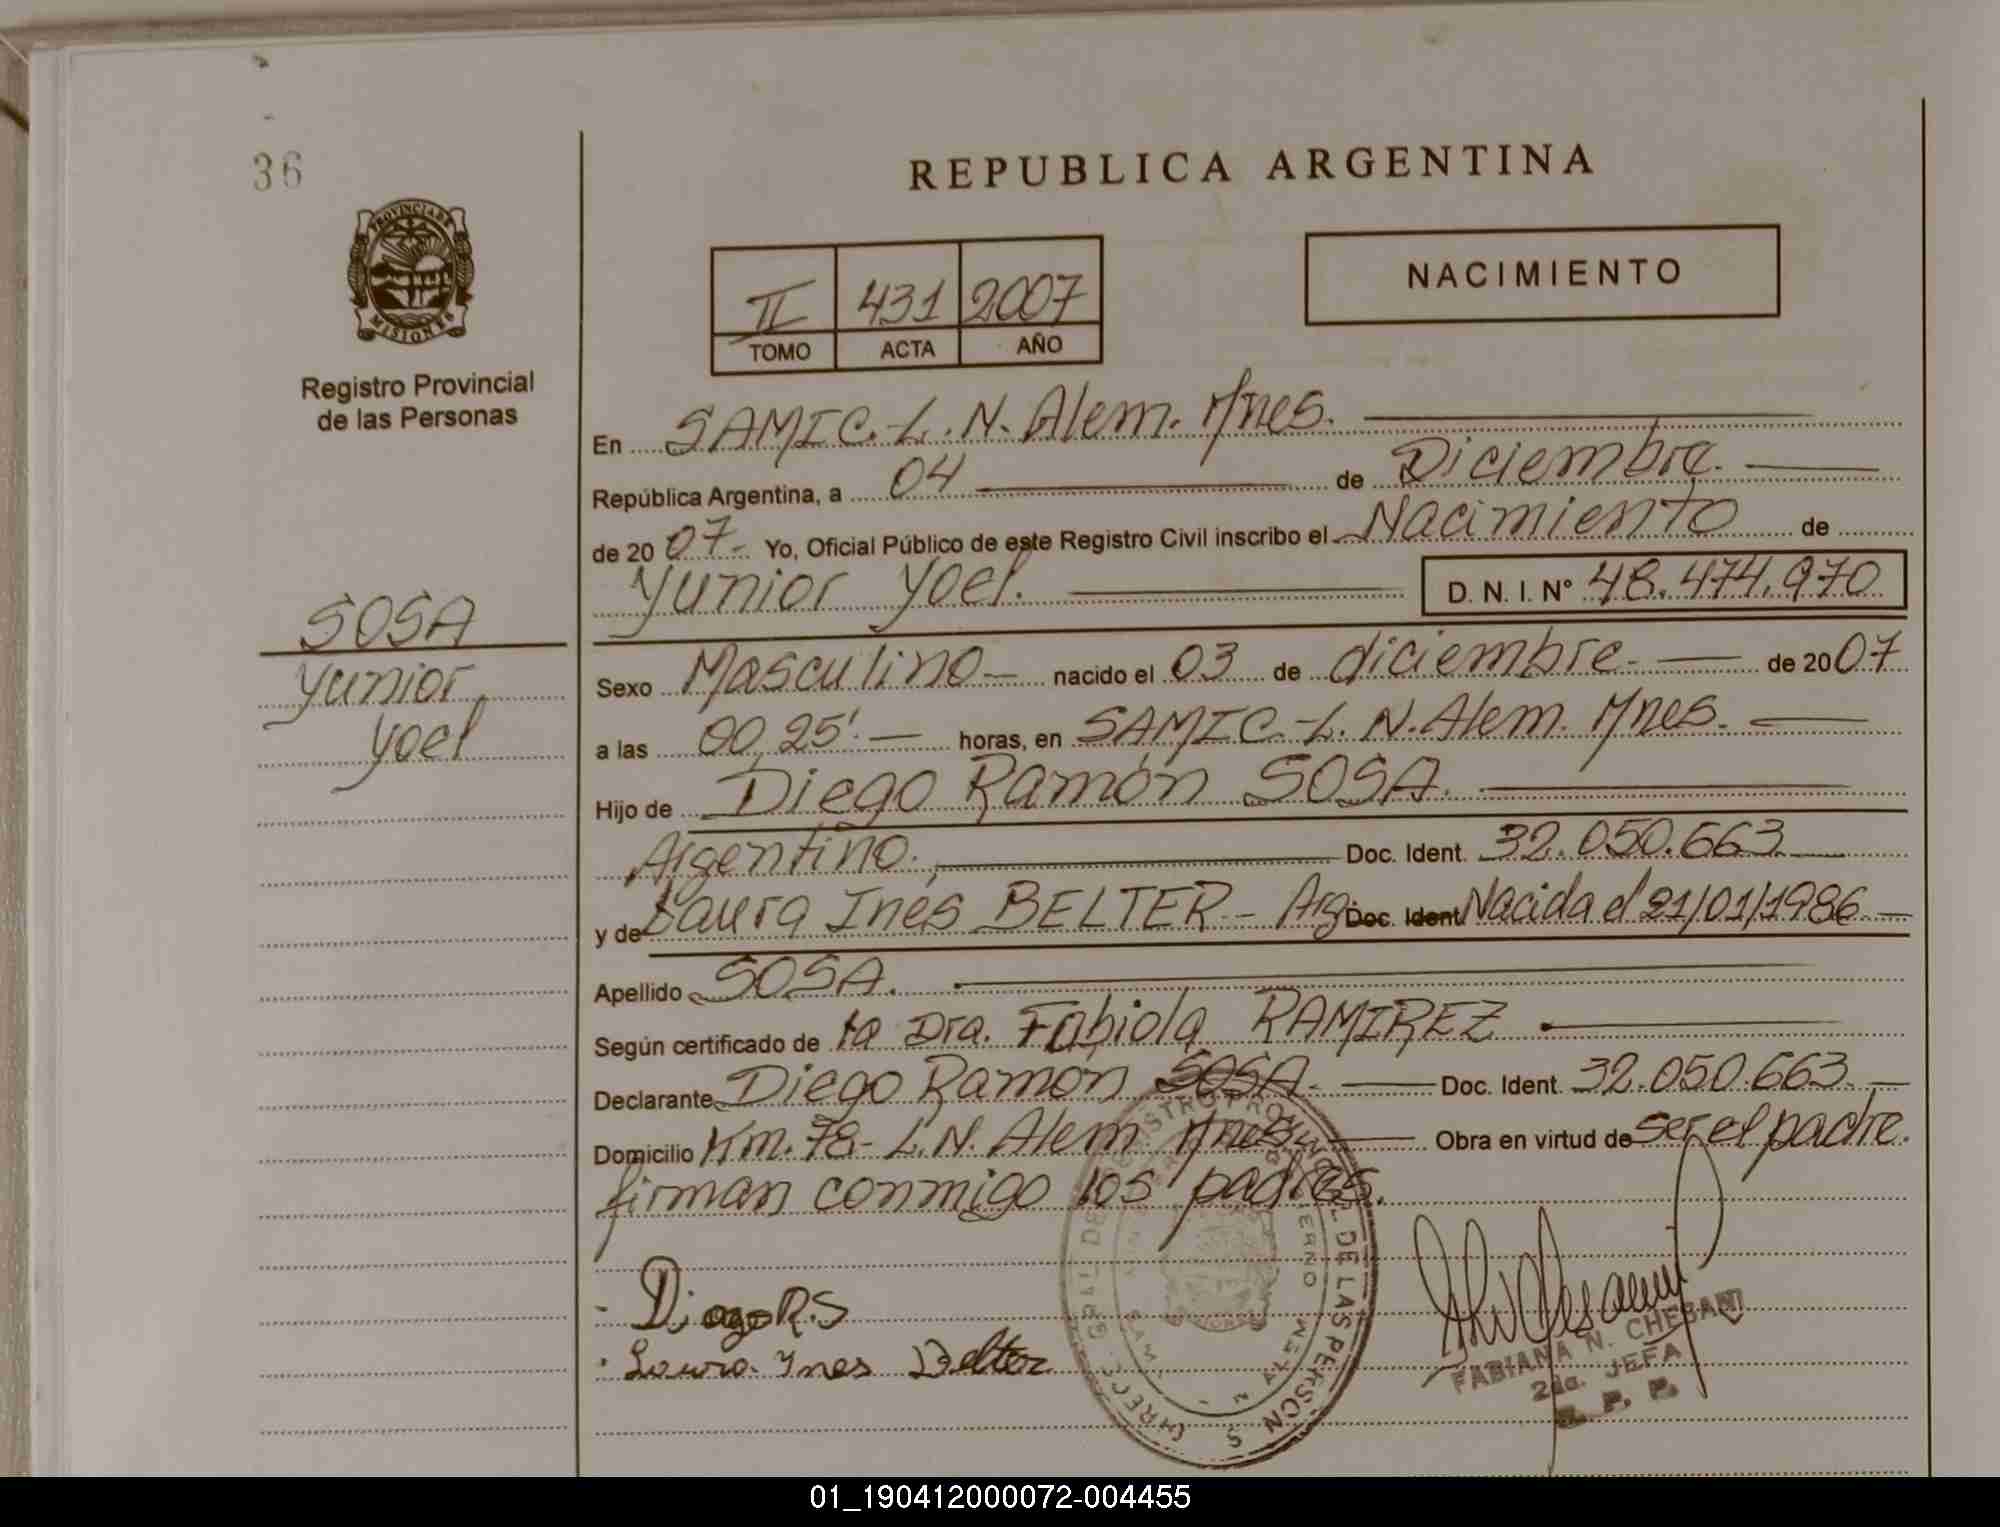 36
REPUBLICA ARGENTINA
PROVINCIA DE MISIONES
Registro Provincial
de las Personas
II 431 2007
TOMO ACTA AÑO
NACIMIENTO
En SAMIC.-L.N. Alem. Mnes.
República Argentina, a 04 de Diciembre.
de 20 07.- Yo, Oficial Público de este Registro Civil inscribo el Nacimiento de
Yunior Yoel. D. N. I. N° 48.474.970
SOSA
Yunior
Yoel
Sexo Masculino nacido el 03 de diciembre. de 20 07
a las 00,25'. horas, en SAMIC-L.N. Alem. Mnes.
Hijo de Diego Ramón SOSA.
Argentino. Doc. Ident. 32.050.663
y de Laura Inés BELTER - Arg Doc. Ident Nacida el 21/01/1986
Apellido SOSA.
Según certificado de la Dra. Fabiola RAMIREZ
Declarante Diego Ramón SOSA. Doc. Ident. 32.050.663
Domicilio Km. 78- L.N. Alem Mnes. Obra en virtud de ser el padre.
firman conmigo los padres.
Diego R.S
Laura Ines Belter
FABIANA N. CHEBANI
2da. JEFA
R. P. P.
01_190412000072-004455